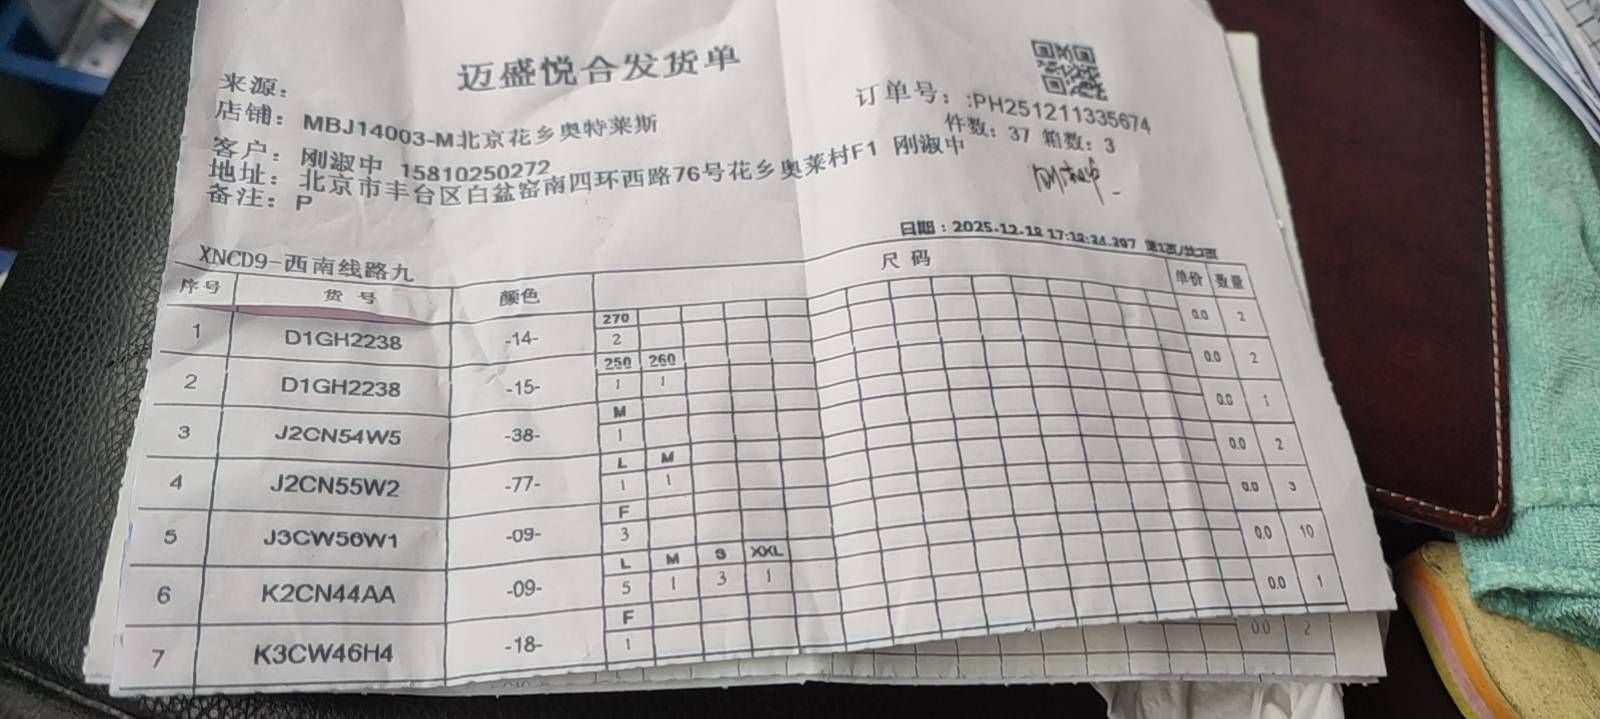 迈盛悦合发货单
来源：
店铺：MBJ14003-M北京花乡奥特莱斯
订单号：:PH25121133567​4
客户：刚淑中 15810250272
件数：37 箱数：3
地址：北京市丰台区白盆窑南四环西路76号花乡奥莱村F1 刚淑中
备注：P
刚淑中
日期：2025-12-18 17:12:24.397 第1页/共3页
XNCD9-西南线路九
序号 货号 颜色 尺码 单价 数量
270
1 D1GH2238 -14- 2 0.0 2
250 260
2 D1GH2238 -15- 1 1 0.0 2
M
3 J2CN54W5 -38- 1 0.0 1
L M
4 J2CN55W2 -77- 1 1 0.0 2
F
5 J3CW56W1 -09- 3 0.0 3
L M S XXL
6 K2CN44AA -09- 5 1 3 1 0.0 10
F
7 K3CW46H4 -18- 1 0.0 1
0.0 2